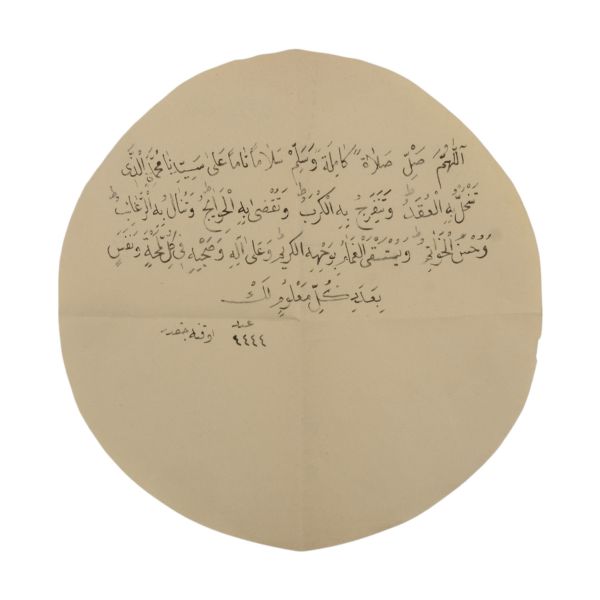 اَللّٰهُمَّ صَلِّ صَلَاةً كَامِلَةً وَسَلِّمْ سَلَامًا تَامًّا عَلٰى سَيِّدِنَا مُحَمَّدٍ الَّذِى
تَنْحَلُّ بِهِ الْعُقَدُ وَتَنْفَرِجُ بِهِ الْكُرَبُ وَتُقْضٰى بِهِ الْحَوَائِجُ وَتُنَالُ بِهِ الرَّغَائِبُ
وَحُسْنُ الْخَوَاتِمِ وَيُسْتَسْقَى الْغَمَامُ بِوَجْهِهِ الْكَرِيمِ وَعَلٰى اٰلِهِ وَصَحْبِهِ فِى كُلِّ لَمْحَةٍ وَنَفَسٍ
بِعَدَدِ كُلِّ مَعْلُومٍ لَكَ
عدد
٤٤٤٤